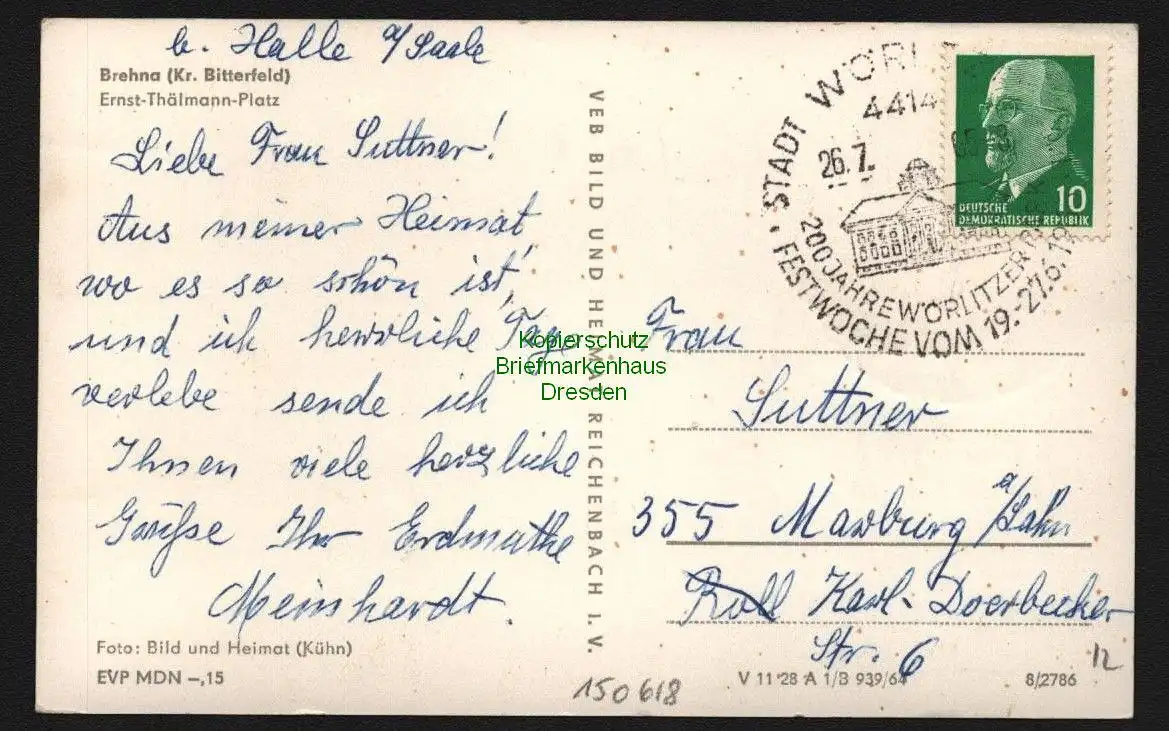 b. Halle a/Saale
Brehna (Kr. Bitterfeld)
Ernst-Thälmann-Platz
Liebe Frau Suttner!
Aus meiner Heimat,
wo es so schön ist,
und ich herrliche Tage
verlebe sende ich
Ihnen viele herzliche
Grüße Ihr Erdmuthe
Meinhardt.
Foto: Bild und Heimat (Kühn)
EVP MDN –,15
VEB BILD UND HEIMAT REICHENBACH I. V.
150618
STADT WÖRL
4414
26.7.
65-8
200 JAHRE WÖRLITZER
FESTWOCHE VOM 19.-27.6.19
10
DEUTSCHE
DEMOKRATISCHE REPUBLIK
Kopierschutz
Briefmarkenhaus
Dresden
Frau
Suttner
355 Marburg a/Lahn
Karl-Doerbecker
Str. 6
12
V 11 28 A 1/B 939/64
8/2786